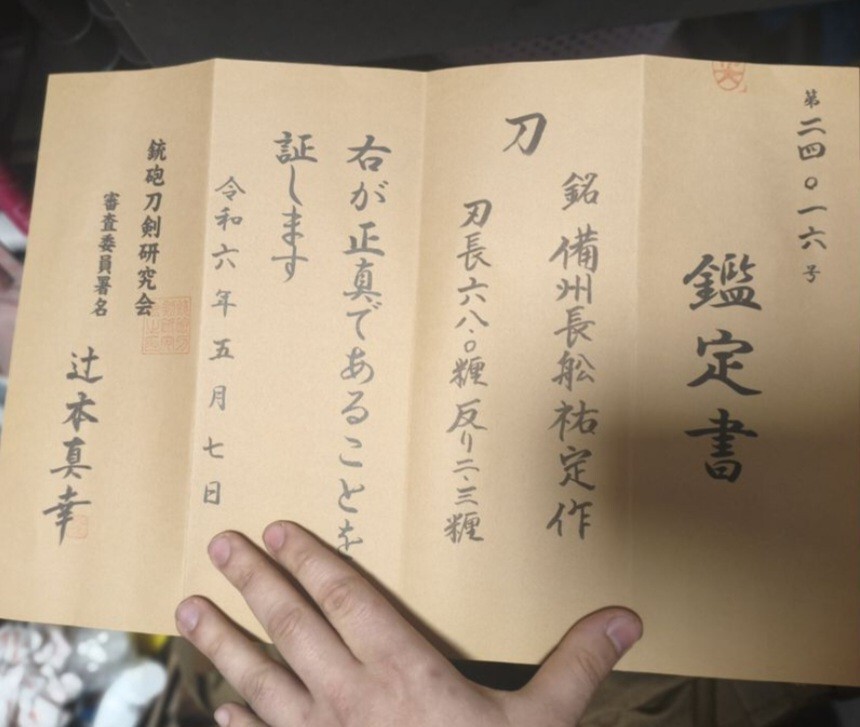 第二四〇一六号
鑑定書
刀
銘 備州長舩祐定作
刃長六八.〇糎 反り二.三糎
右が正真であることを
証します
令和六年五月七日
銃砲刀剣研究会
審査委員署名
辻本真幸